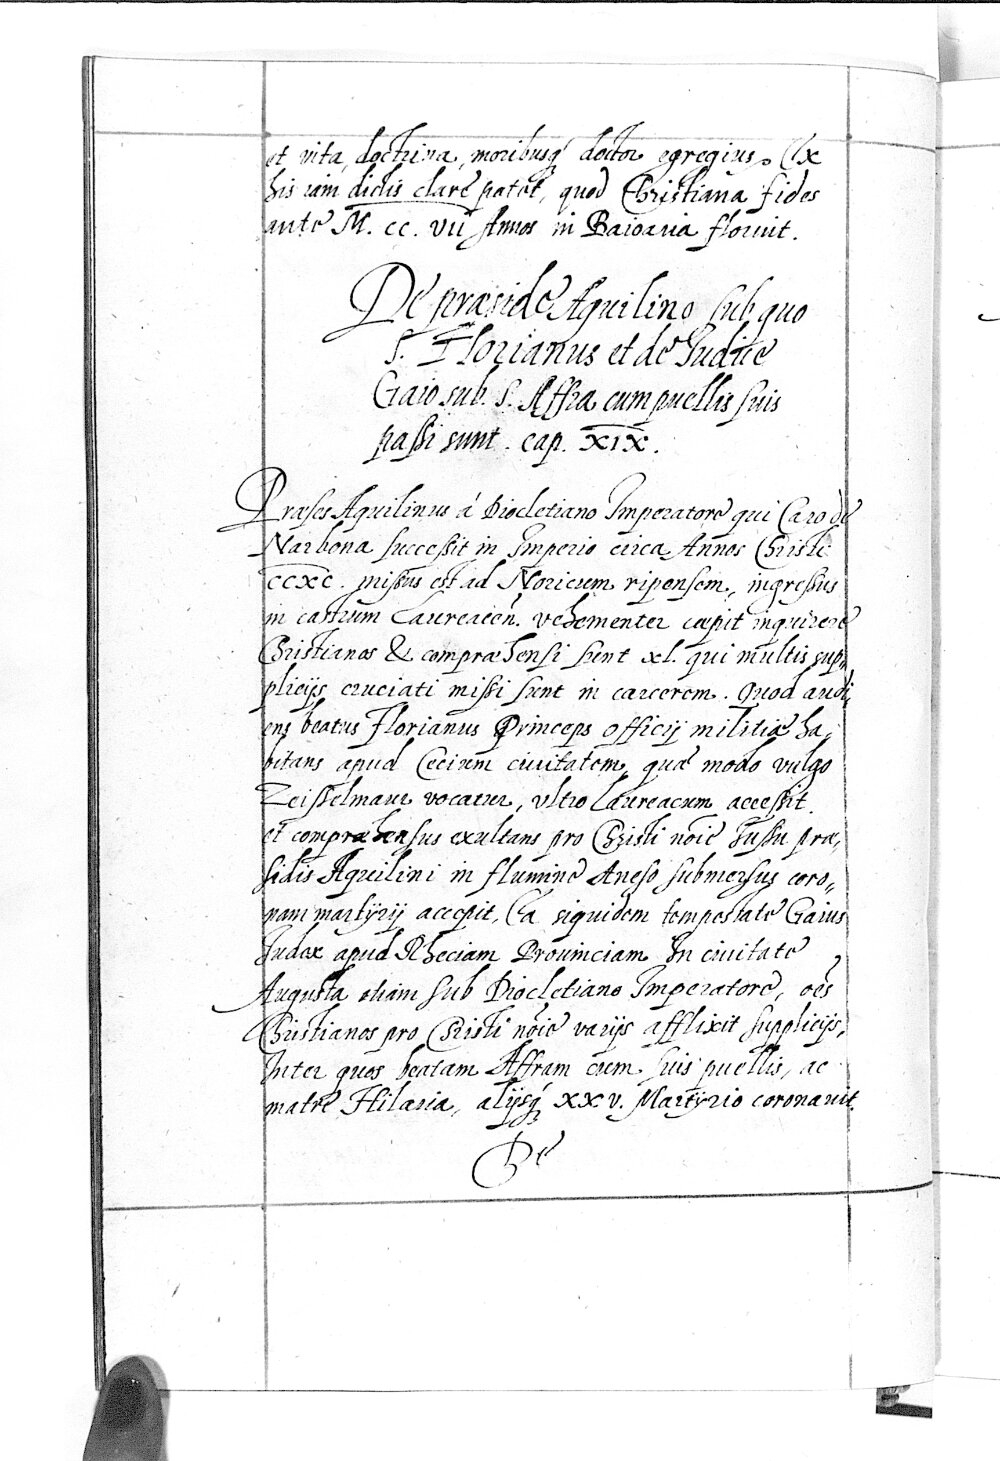 et vita, doctrina, moribusq́ doctor egregius. Ex
his iam dictis clare patet, quod Christiana fides
ante M. CC. VII Annos in Baioaria floruit.
De præside Aquilino sub quo
S. Florianus et de Iudice
Gaio sub S. Affra cum puellis suis
passi sunt. cap. XIX.
Præses Aquilinus á Diocletiano Imperatore qui Caro de
Narbona successit in Imperio circa Annos Christi
CCXC. missus est ad Noricum ripensem, ingressus
in castrum Laureaceń. vehementer cœpit inquirere
Christianos & compræhensi sunt xl. qui multis sup,,
plicijs cruciati missi sunt in carcerem. Quod audi,
ens beatus Florianus Princeps officij militiæ ha,
bitans apud Cecium civitatem, quæ modo vulgo
Zeisselmaur vocatur, vltro Laureacum accessit.
et compræhensus exultans pro Christi nōie Iussu præ,
sidis Aquilini in flumine Aneso submersus coro,,
nam martÿrij accepit. Ea siquidem tempestate Gaius
Iudex apud Rheciam Prouinciam In ciuitate
Augusta etiam sub Diocletiano Imperatore, oēs
Christianos pro Christi nōie varijs afflixit supplicijs,
Inter quos beatam Affram cum suis puellis, ac
matre Hilaria, alijsq́ XXV. Martÿrio coronauit.
De